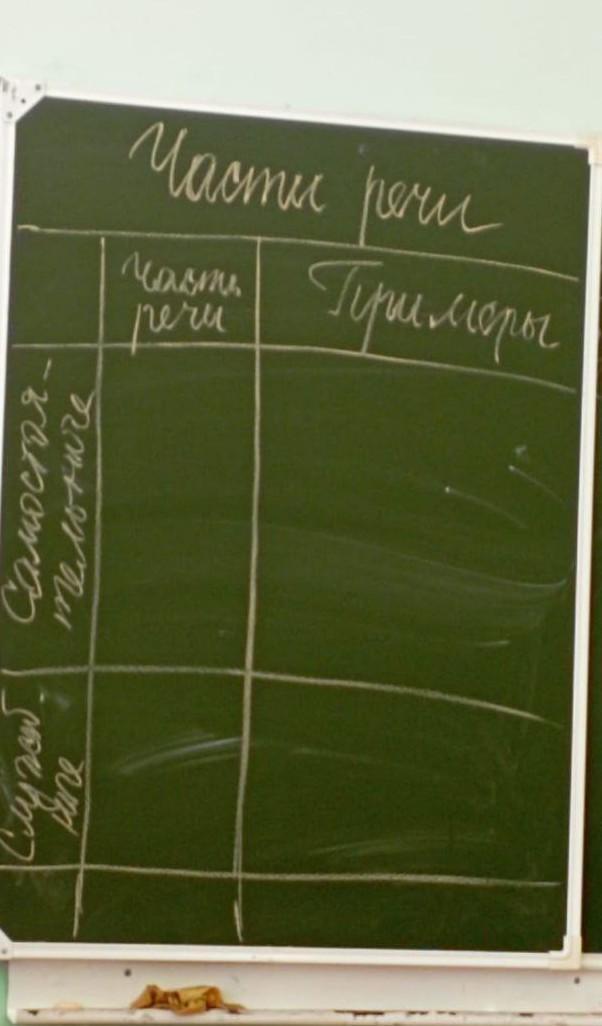 Части речи
Части
речи
Примеры
Самостоя-
тельные
Служеб
ные